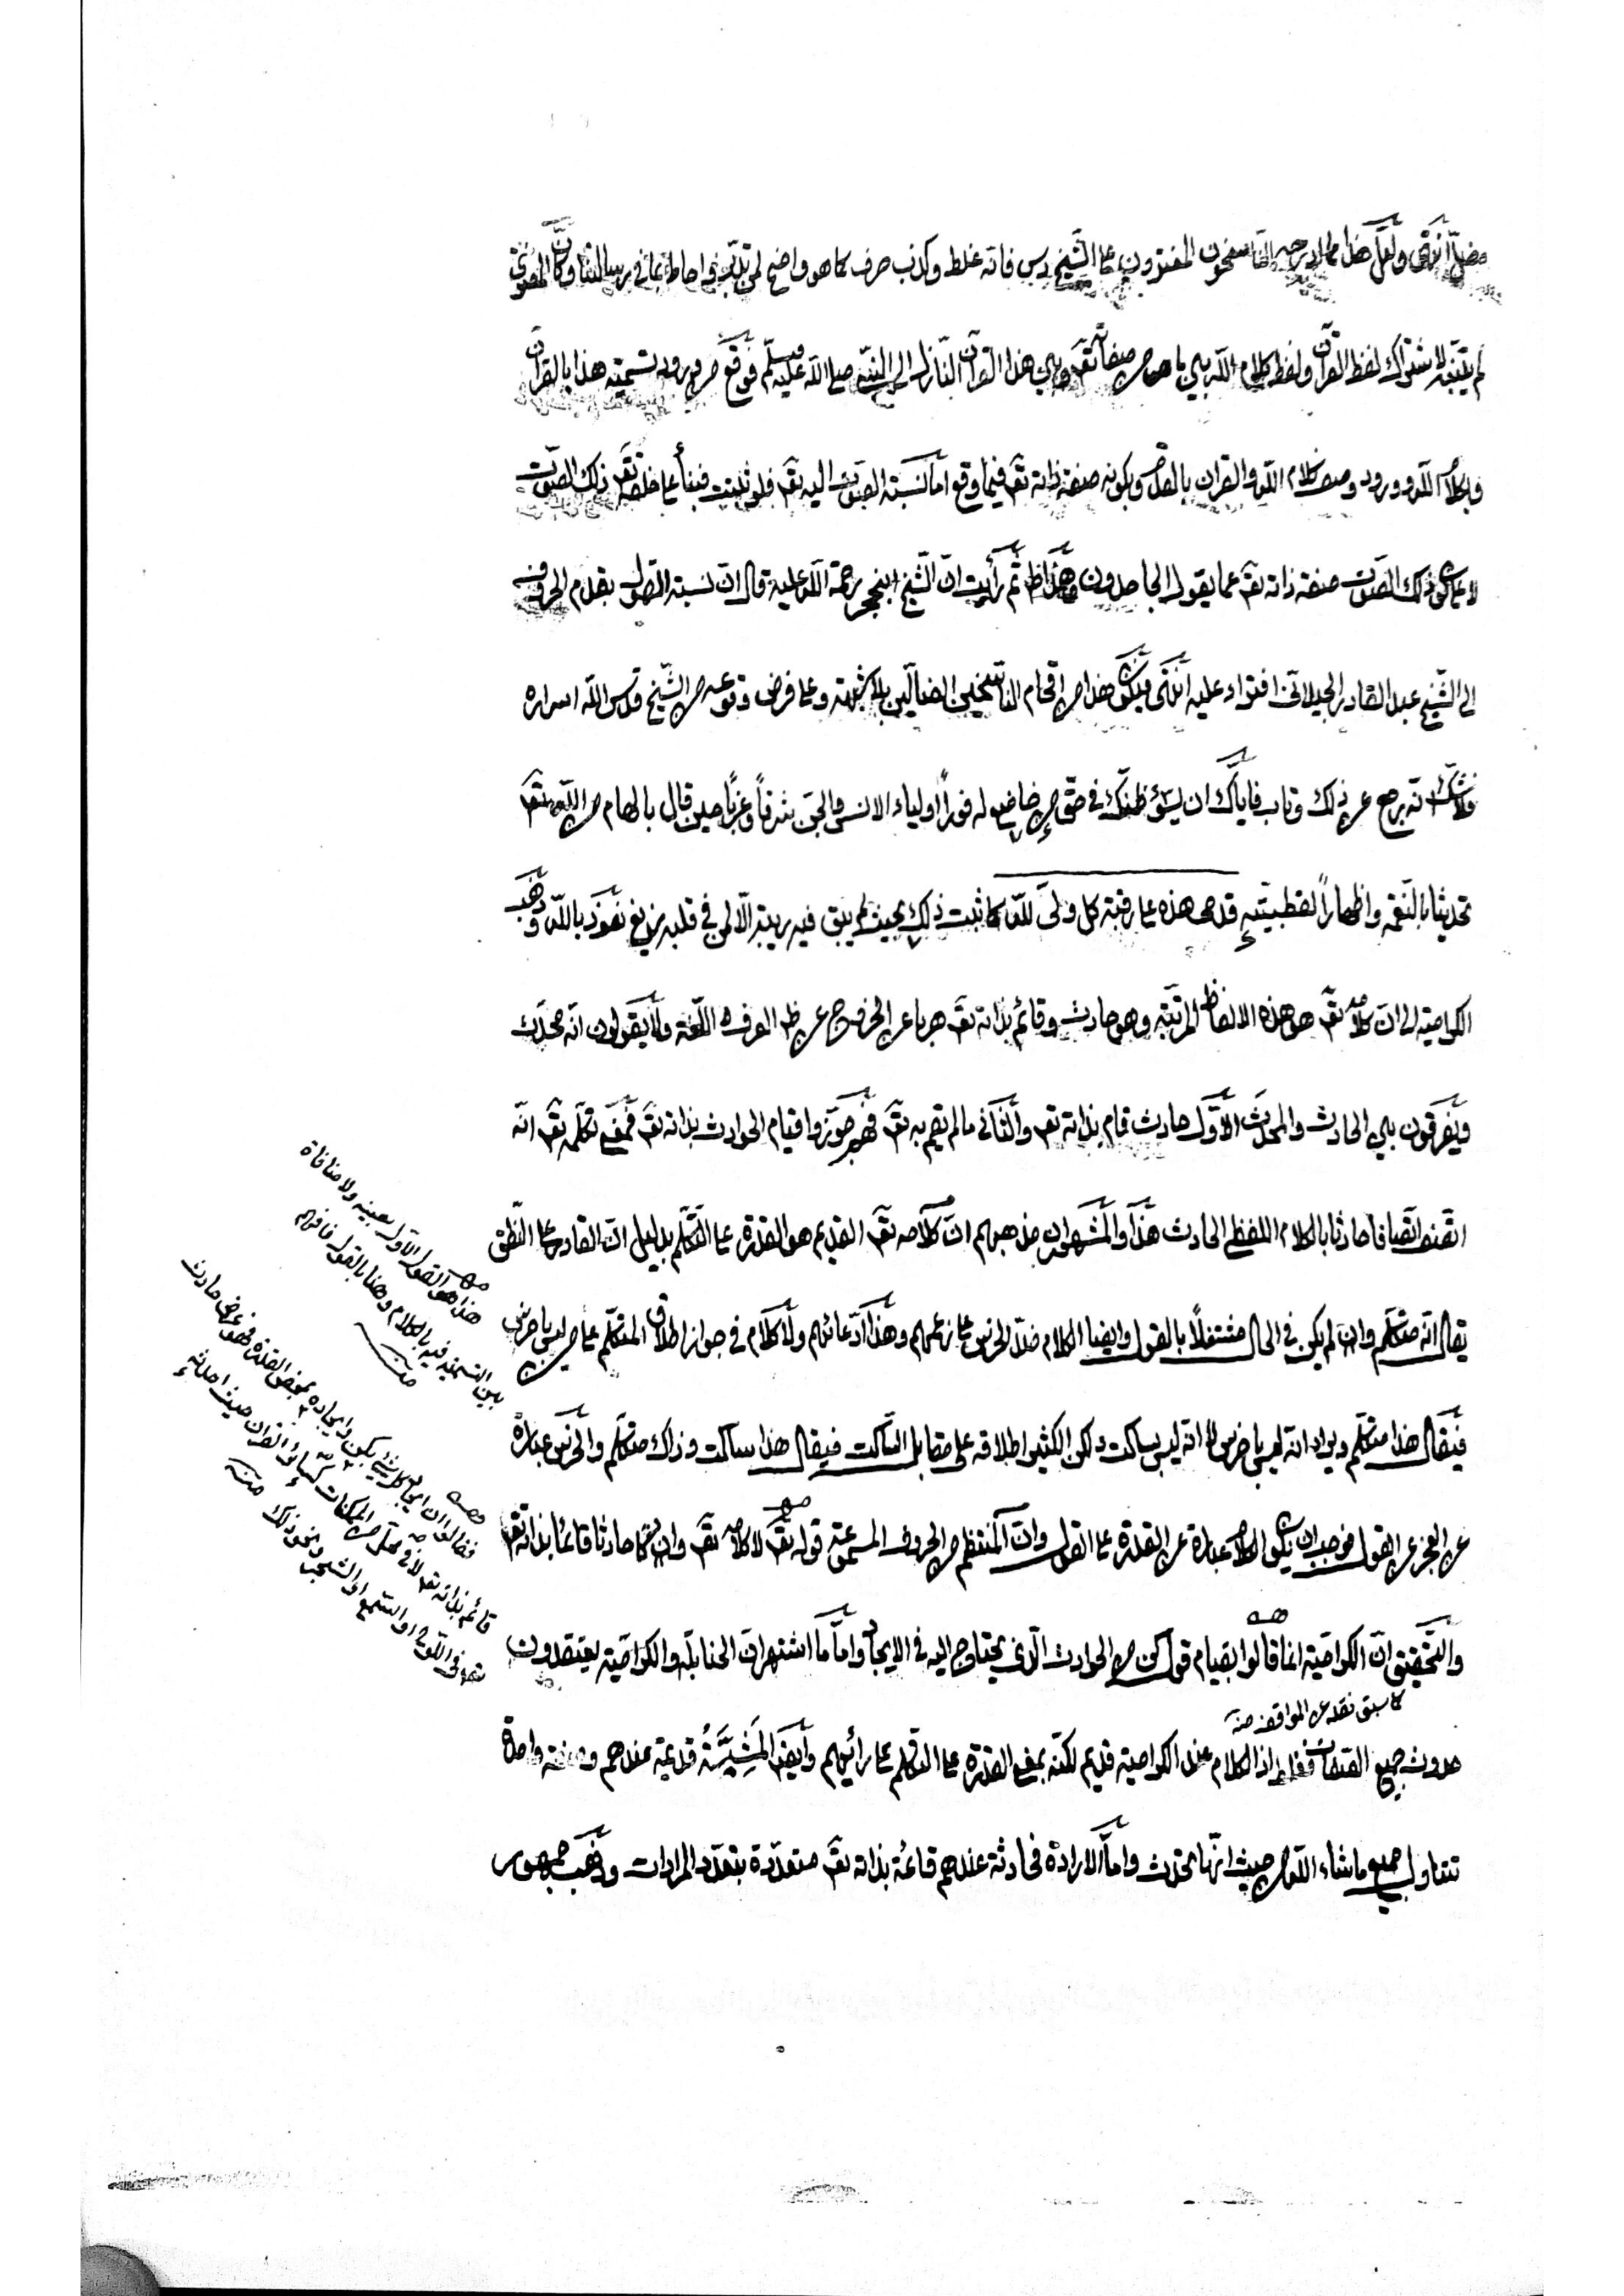 ولعل هذا مما ادرجه الناسخون المفترون على الشيخ قدس فانه غلط وكذب صرف كما هو واضح لمن تدبّر واحاط بما في رسالتنا وكأنّ
لم يتنبّه لاشتراك لفظ القرآن ولفظ كلام الله بين ما هو من صفاته تعٓ وبين هذا القرآن النازل الى النبيّ صلى الله عليه وسلّم فوقع من ورود تسمية هذا بالقرآن
وبكلام الله وورود وصف كلام الله والقران بالقدم وبكونه صفة ذاته تعٓ فيما وقع امّا نسبة الصوت اليه تعٓ فلو ثبتت فبناءً على خلقه تعٓ ذلك الصوت
لا على كون ذلك الصوت صفة ذاته تعٓ عما يقول الجاحدون هذا ثم رأيت انّ الشيخ ابن حجر رحمة الله عليه قال انّ نسبة القول بقدم الحروف
الى الشيخ عبد القادر الجيلانيّ افتراء عليه انتهى فيكون هذا من اقحام الناسخين الضالّين بلا شبهة وعلى فرض وقوعه من الشيخ قدس الله اسراره
فلا شكّ انه رجع عن ذلك وتاب فايّاك ان يسوء ظنّك في حقّ من خاضع له فوراً اولياء الانس والجن شرقاً وغرباً حين قال بالهام من الله تعٓ
تحديثا بالنعمة واظهاراً لقطبيّته قدمي هذه على رقبة كل وليّ لله كما ثبت ذلك بحيث لم يبق فيه ريبة الّا لمن في قلبه زيغ نعوذ بالله وذهب
الكرامية الى انّ كلامه تعٓ هو هذه الالفاظ المرتّبة وهو حادث وقائم بذاته تعٓ هربا عن الخروج عن ظ العرف واللّغة ولا يقولون انّه محدث
ويفرقون بين الحادث والمحدث الاوّل حادث قام بذاته تعٓ والثاني ما لم يقم به تعٓ فهم جوّزوا قيام الحوادث بذاته تعٓ فمعنى تكلّمه تعٓ انّه
اتّصف اتّصافا حادثا بالكلام اللفظي الحادث هذا والمشهور من مذهبهم انّ كلامه تعٓ القديم هو القدرة على التكلّم بدليل انّ القادر على النّطق
يقال انّه متكلّم وان لم يكن في الحال مشتغلاً بالقول وايضا الكلام ضدّ الخرس على زعمهم وهذا ادّعائهم ولا كلام في جواز اطلاق المتكلّم على من ليس باخرس
فيقال هذا متكلّم ويراد انه ليس باخرس لا انه ليس بساكت ولكن الكثير اطلاقه على مقابل السّاكت فيقال هذا ساكت وذاك متكلّم والخرس عبارة
عن العجز عن القول فوجب ان يكون الكلام عبارة عن القدرة على القول وانّ المنتظم من الحروف المسموعة قوله تعٓ لا كلامه تعٓ وان كان حادثا قائما بذاته تعٓ
والتحقيق انّ الكرامية انما قالوا بقيام قول كن من الحوادث الّذي يحتاج اليه في الايجاد وامّا ما اشتهر انّ الحنابلة والكرامية يعتقدون
كما سبق نقله عن المواقف منه
حدوث جميع الصفات فغلط اذ الكلام عند الكرامية قديم لكنه بمعنى القدرة على التكلم على رائيهم وايضا المَشِيَّئَةُ قديمة عندهم وصفة واحدة
تتناول جميع ما شاء الله من حيث انّها تحدث وامّا الارادة فحادثة عندهم قائمة بذاته تعٓ متعدّدة بتعدّد المرادات وذهب جمهور
هذا هو القول الاوّل بعينه ولا منافاة
بين التسمية فيه بالكلام وهنا بالقول فافهم
منه
فقالوا ان ايجاد كل شيء بكن وايجاده بمحض القدرة فهو غرض حادث
قائم بذاته تعٓ لا في محل من الممكنات كسائر القران حيث احداثه
تعٓ في اللّوح او السّمع او الشجر ونحو ذلك منه